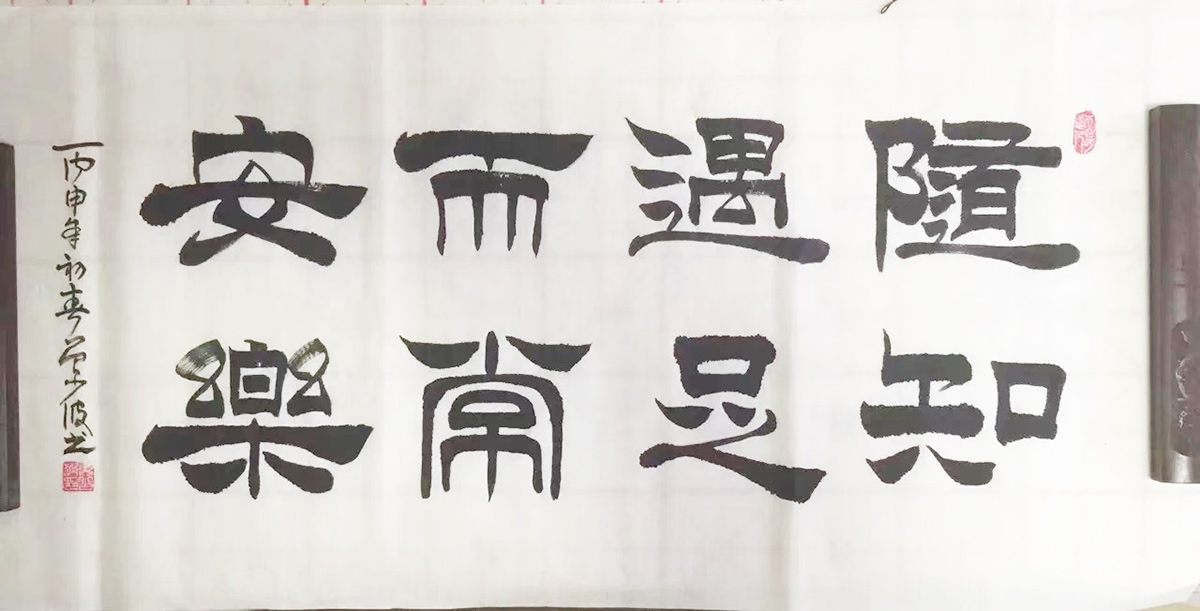 隨遇而安
知足常樂
丙申年初春波书